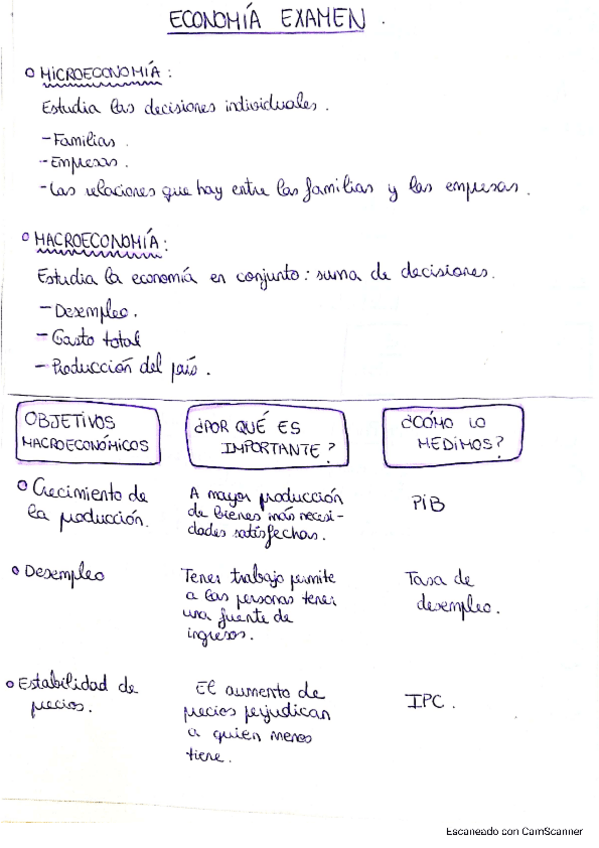 ECONOMÍA EXAMEN.
MICROECONOMÍA:
Estudia las decisiones individuales.
- Familias.
- Empresas.
- Las relaciones que hay entre las familias y las empresas.
MACROECONOMÍA:
Estudia la economía en conjunto: suma de decisiones.
- Desempleo.
- Gasto total
- Producción del país.
OBJETIVOS
MACROECONÓMICOS
¿POR QUÉ ES
IMPORTANTE?
¿CÓMO LO
MEDIMOS?
Crecimiento de
la producción.
A mayor producción
de bienes más necesi-
dades satisfechas.
PIB
Desempleo
Tener trabajo permite
a las personas tener
una fuente de
ingresos.
Tasa de
desempleo.
Estabilidad de
precios.
El aumento de
precios perjudican
a quien menos
tiene.
IPC.
Escaneado con CamScanner